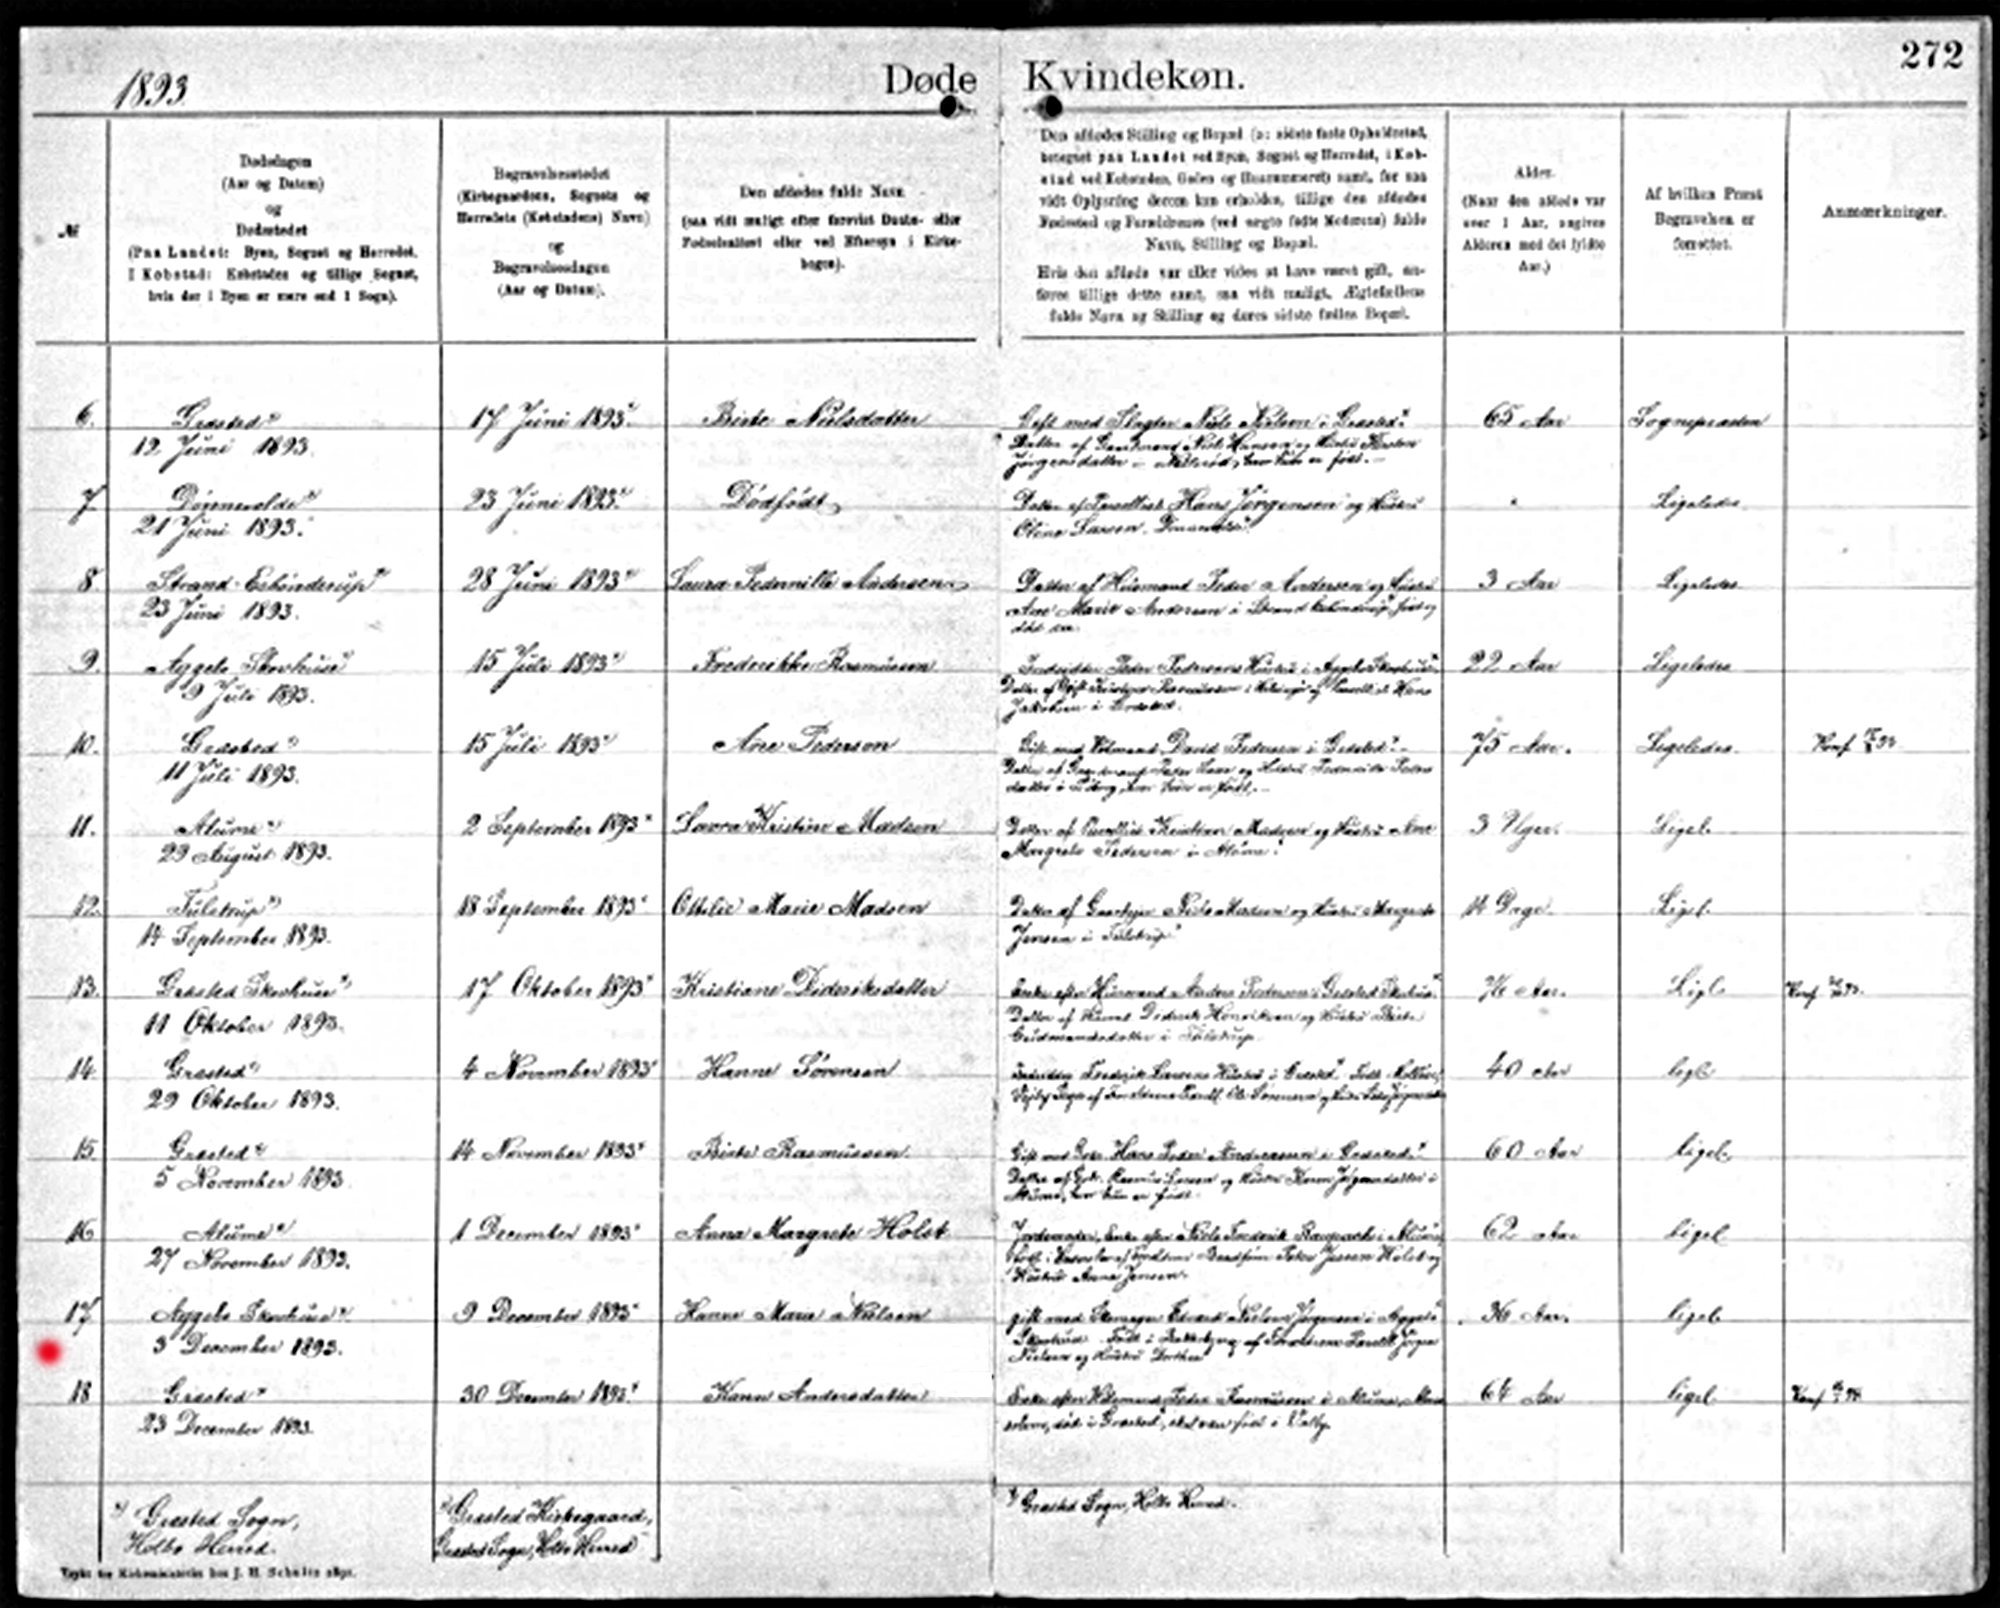 272
1893.
Døde Kvindekøn.
№
Dødsdagen
(Aar og Datum)
og
Dødsstedet
(Paa Landet: Byen, Sognet og Herredet,
I Købstad: Købstaden og tillige Sognet,
hvis der i Byen er mere end 1 Sogn).
Begravelsesstedet
(Kirkegaardens, Sognets og
Herredets (Købstadens) Navn)
og
Begravelsesdagen
(Aar og Datum).
Den afdødes fulde Navn
(saa vidt muligt efter forevist Daabs- eller
Fødselsattest eller ved Eftersyn i Kirke-
bogen).
Den afdødes Stilling og Bopæl (o: sidste faste Opholdssted,
betegnet paa Landet ved Byen, Sognet og Herredet, i Køb-
stad ved Købstaden, Gaden og Husnummeret) samt, for saa
vidt Oplysning derom kan erholdes, tillige den afdødes
Fødested og Forældrenes (ved uægte fødte Moderens) fulde
Navn, Stilling og Bopæl.
Hvis den afdøde var eller vides at have været gift, an-
føres tillige dette samt, saa vidt muligt, Ægtefællens
fulde Navn og Stilling og deres sidste fælles Bopæl.
Alder.
(Naar den afdøde var
over 1 Aar, angives
Alderen med det fyldte
Aar.)
Af hvilken Præst
Begravelsen er
forrettet.
Anmærkninger.
6. Græsted 17 Juni 1893 Birte Nielsdatter Gift med Slagter Niels Nielsen i Græsted 65 Aar Sognepræsten
12 Juni 1893. Datter af Gaardmand Niels Hansen og Hustru Kirsten
Jørgensdatter i hvor hun er født.
7. 23 Juni 1893 Dødfødt Datter af Parcellist Hans Jørgensen og Hustru Ligeledes
21 Juni 1893. Larsen
8. Strand-Esbønderup 28 Juni 1893 Laura Pedernille Andersen Datter af Husmand Peder Andersen og Hustru 3 Aar Ligeledes
23 Juni 1893. Ane Marie Andersen i Strand Esbønderup, født og
9. Aggebo Skovhuse 15 Juli 1893 Frederikke Rasmussen Indsidder Peder Pedersens Hustru i Aggebo Skovhuse 22 Aar Ligeledes
9 Juli 1893. Datter af Rasmussen i Helsingør af Parcellist Hans
Jakobsen i Græsted.
10. Græsted 15 Juli 1893 Ane Pederson Gift med Husmand David Pedersen i Græsted 75 Aar. Ligeledes
11 Juli 1893. Datter af Gaardmand Peder og Hustru Pedernille Peders
datter i hvor hun er født.
11. Alume 2 September 1893 Laura Kristine Madsen Datter af Parcellist Kristian Madsen og Hustru Ane 3 Uger. Ligel.
29 August 1893. Margrete Pedersen i Alume
12. Tulstrup 18 September 1893 Ottilie Marie Madsen Datter af Gaardejer Niels Madsen og Hustru Margrete 14 Dage. Ligel.
14 September 1893. Jensen i Tulstrup
13. Græsted Skovhuse 17 Oktober 1893 Kristiane Dideriksdatter Enke efter Husmand Anders Pedersen i Græsted Skovhuse. 76 Aar. Ligel.
11 Oktober 1893. Datter af Husmd. Diderik Henriksen og Hustru Birte
Gudmandsdatter i Tulstrup.
14. Græsted 4 November 1893 Hanne Sørensen Indsidder Frederik Larsens Hustru i Græsted. Født 40 Aar ligel.
29 Oktober 1893. Vejby Sogn af Forældrene Parcell. Ole Sørensen og Hustru Jørgensdatter
15. Græsted 14 November 1893 Birte Rasmussen. Gift med Grdr. Hans Peder Andersen i Græsted. 60 Aar ligel.
5 November 1893. Datter af Grdr. Rasmus Larsen og Hustru Karen Jørgensdatter i
Alume, hvor hun er født.
16. Alume 1 December 1893 Anna Margrete Holst Jordemoder, Enke efter Niels Frederik i Alume, 62 Aar ligel.
27 November 1893. født i af Forældrene Peter Jensen Holst og
Hustru Anna Jensen.
17. Aggebo Skovhuse 9 December 1893 Hanne Marie Nielsen gift med Edvard Nielsen Jørgensen i Aggebo 36 Aar. ligel.
3 December 1893. Skovhuse. Født i af Forældrene Parcell. Jørgen
Nielsen og Hustru Dorthea
18. Græsted 30 December 1893 Karen Andersdatter Enke efter Husmand Peder Rasmussen i Alume, 64 Aar ligel.
23 December 1893. død i Græsted, skal være født i Valby.
*) Græsted Sogn,
Holbo Herred.
*) Græsted Kirkegaard,
Græsted Sogn, Holbo Herred
*) Græsted Sogn, Holbo Herred.
Trykt for Kirkeministeriet hos J. H. Schultz 1891.